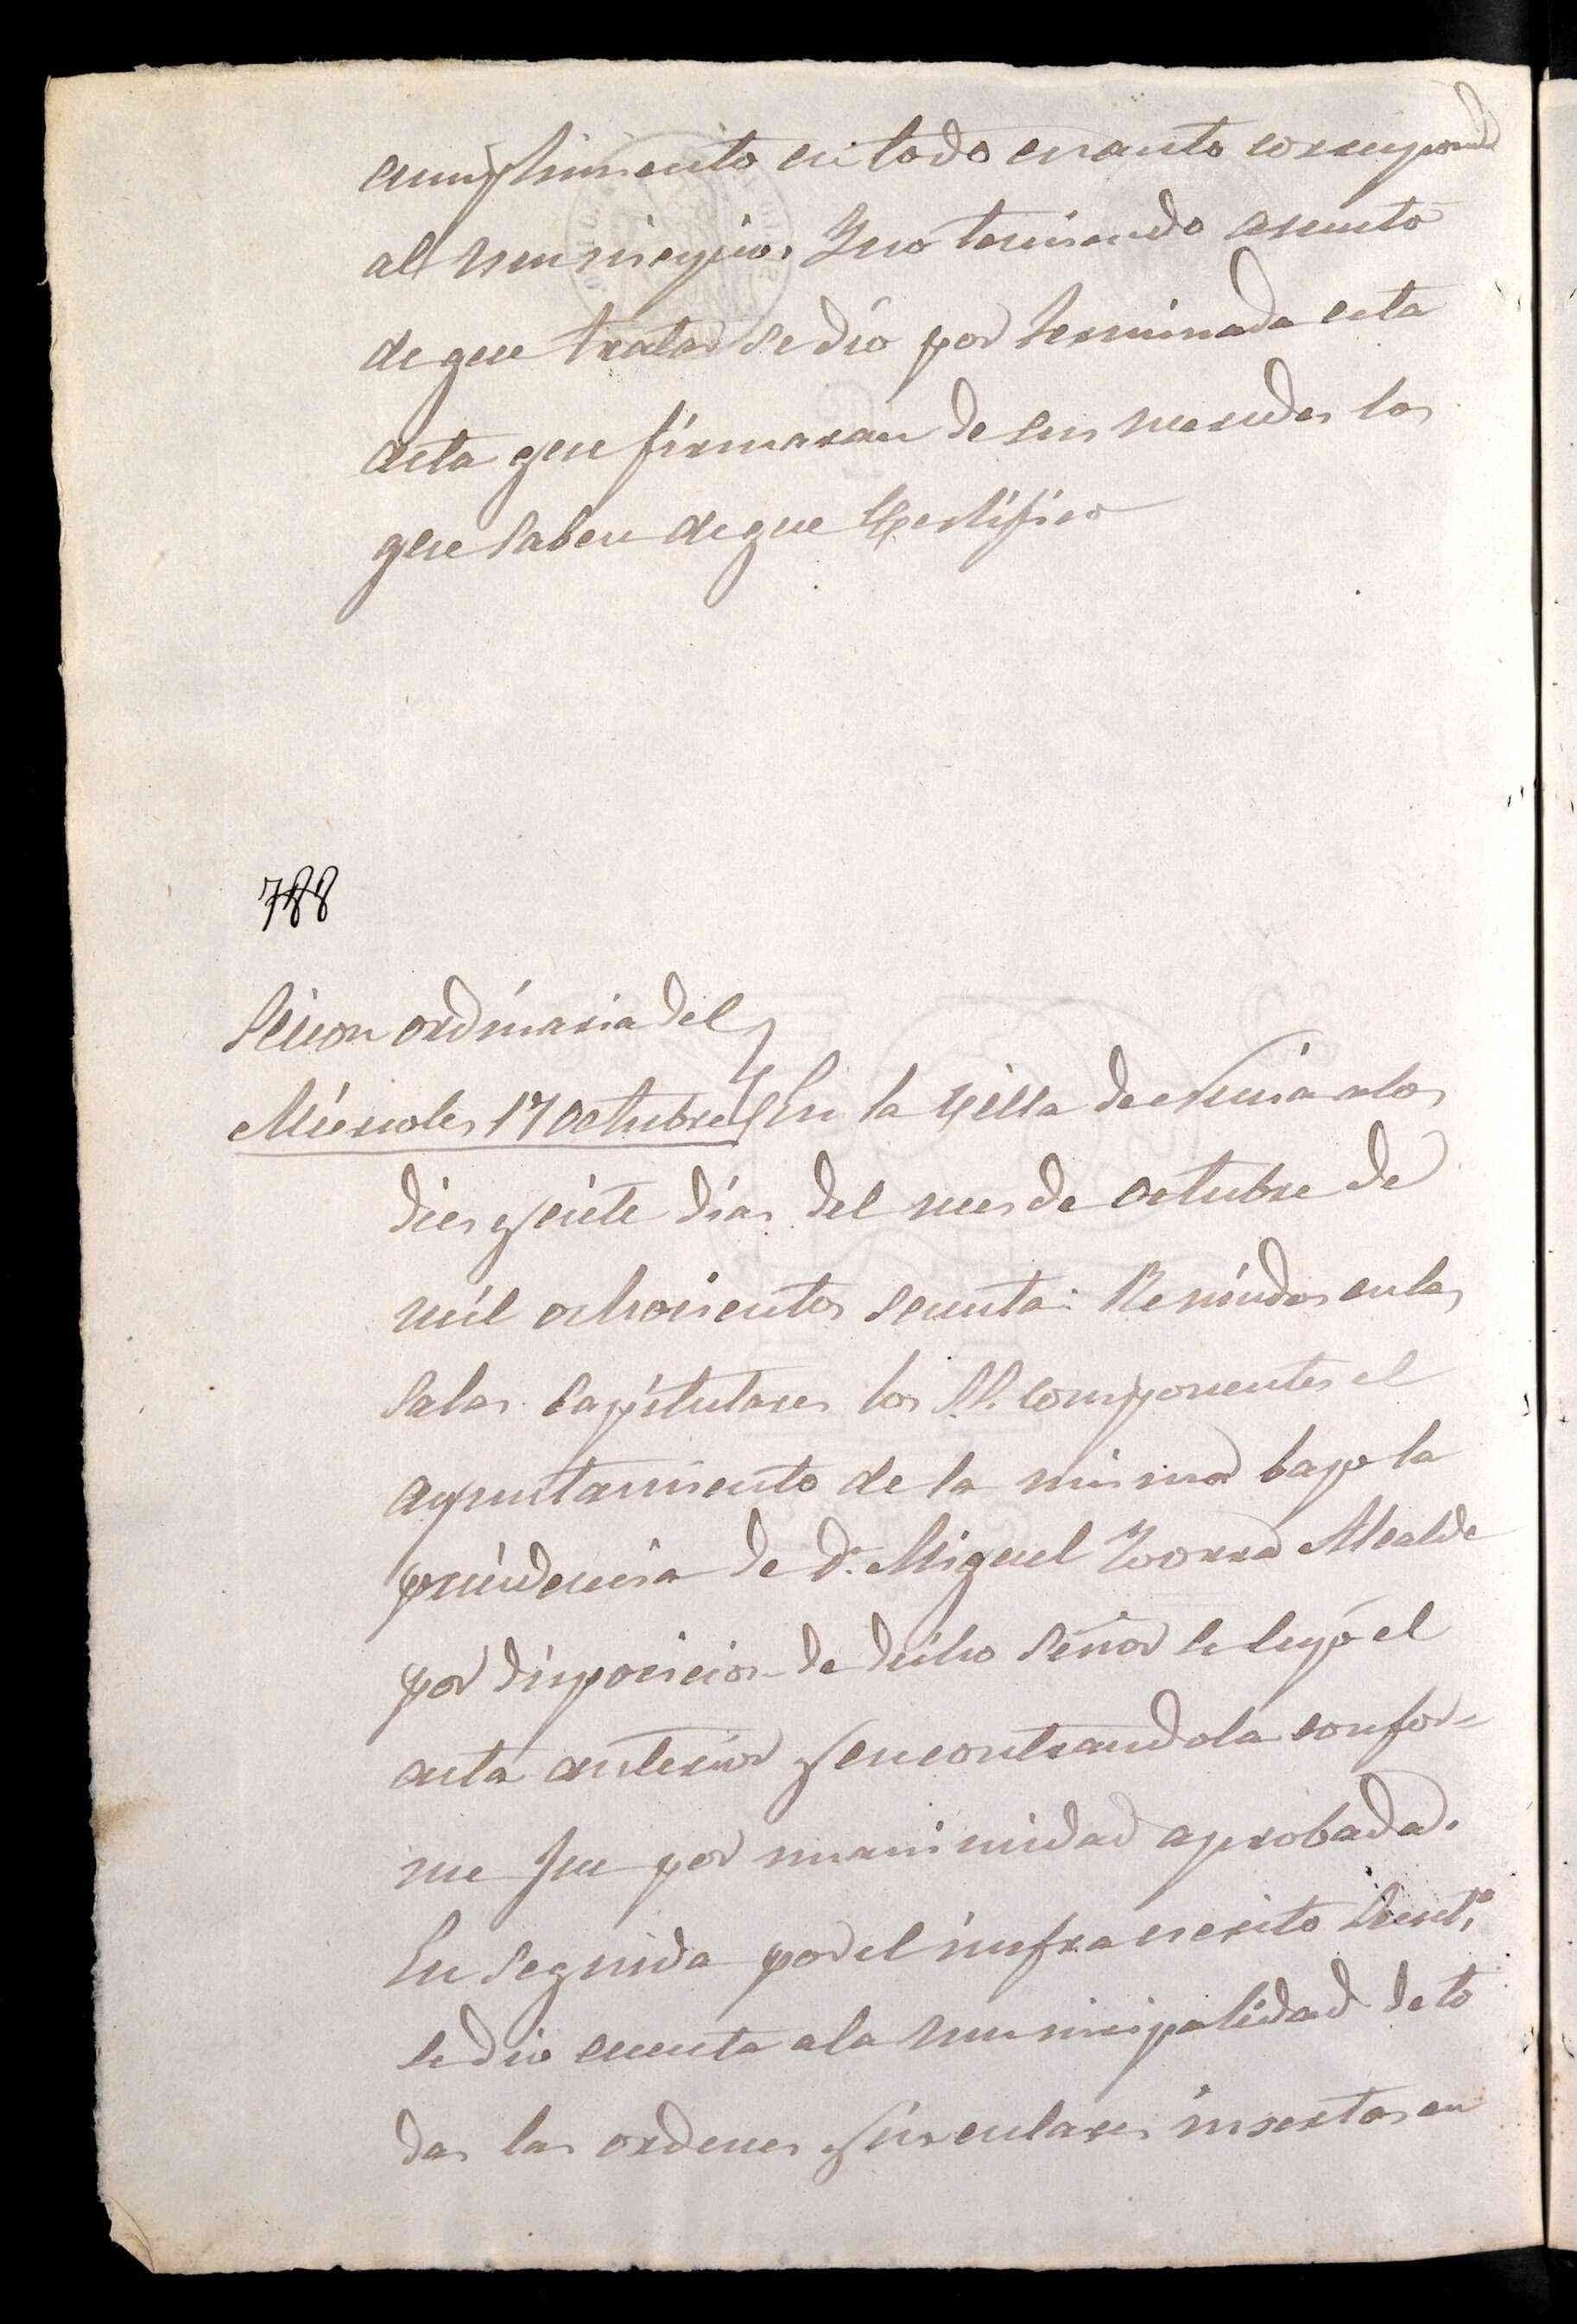 cumplimiento en todo cuanto corresponde
al municipio. Y no teniendo asunto
de que tratar se dio por terminada esta
acta que firmaran de sus mercedes los
que saben de que Certifico
788
Sesion ordinaria del
Miercoles 17 Octubre } En la Villa de Nucia a los
dies y siete dias del mes de Octubre de
mil ochocientos sesenta: Reunidos en las
Salas Capitulares los SS. componentes el
ayuntamiento de la misma bajo la
presidencia de Dn. Miguel Zorra Alcalde
por disposicion de dicho Señor se leyó el
acta anterior y encontrandola confor=
me fue por unanimidad aprobada.
En seguida por el infraescrito Secretº
se dio cuenta a la municipalidad de to
das las ordenes y circulares insertas en